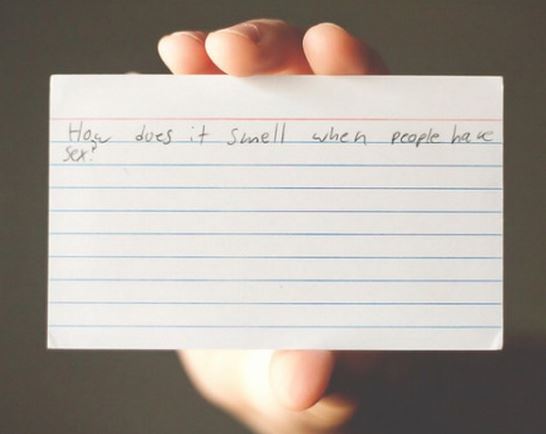 How does it smell when people have
sex?